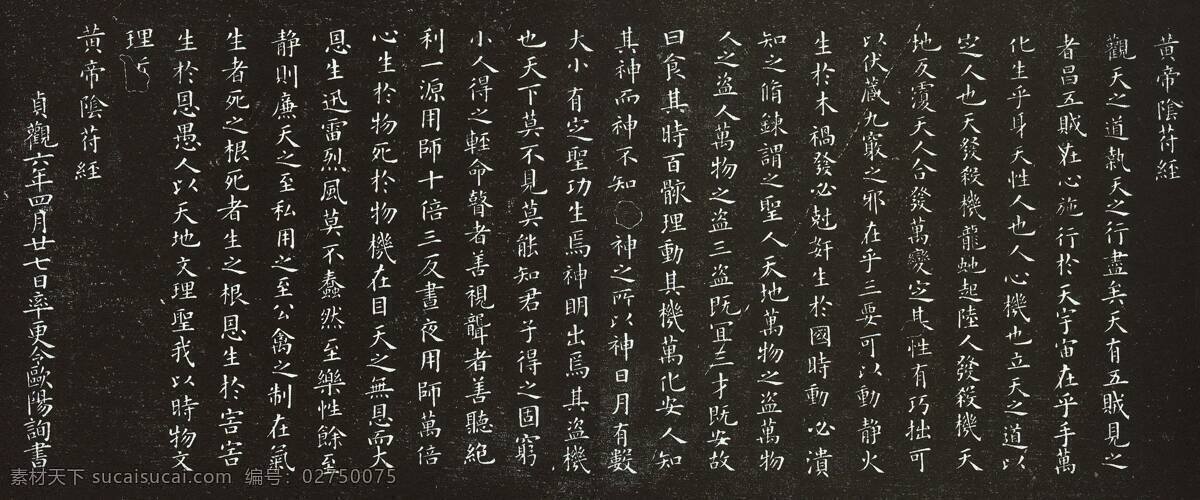 黃帝陰苻經
觀天之道執天之行盡矣天有五賊見之
者昌五賊在心施行於天宇宙在乎手萬
化生乎身天性人也人心機也立天之道以
定人也天發殺機龍虵起陸人發殺機天
地反覆天人合發萬變定其性有巧拙可
以伏藏九竅之邪在乎三要可以動静火
生於木禍發必尅奸生於國時動必潰
知之脩鍊謂之聖人天地萬物之盜萬物
人之盜人萬物之盜三盜既冝三才既安故
曰食其時百骸理動其機萬化安人知
其神而神不知神之所以神日月有數
大小有定聖功生焉神明出焉其盜機
也天下莫不見莫能知君子得之固窮
小人得之輕命瞽者善視聾者善聽絶
利一源用師十倍三反晝夜用師萬倍
心生於物死於物機在目天之無恩而大
恩生迅雷烈風莫不蠢然至樂性餘至
静則廉天之至私用之至公禽之制在氣
生者死之根死者生之根恩生於害害
生於恩愚人以天地文理聖我以時物文
理
黃帝陰苻經
貞觀六年四月廿七日率更令歐陽詢書
素材天下 sucaisucai.com 编号：02750075